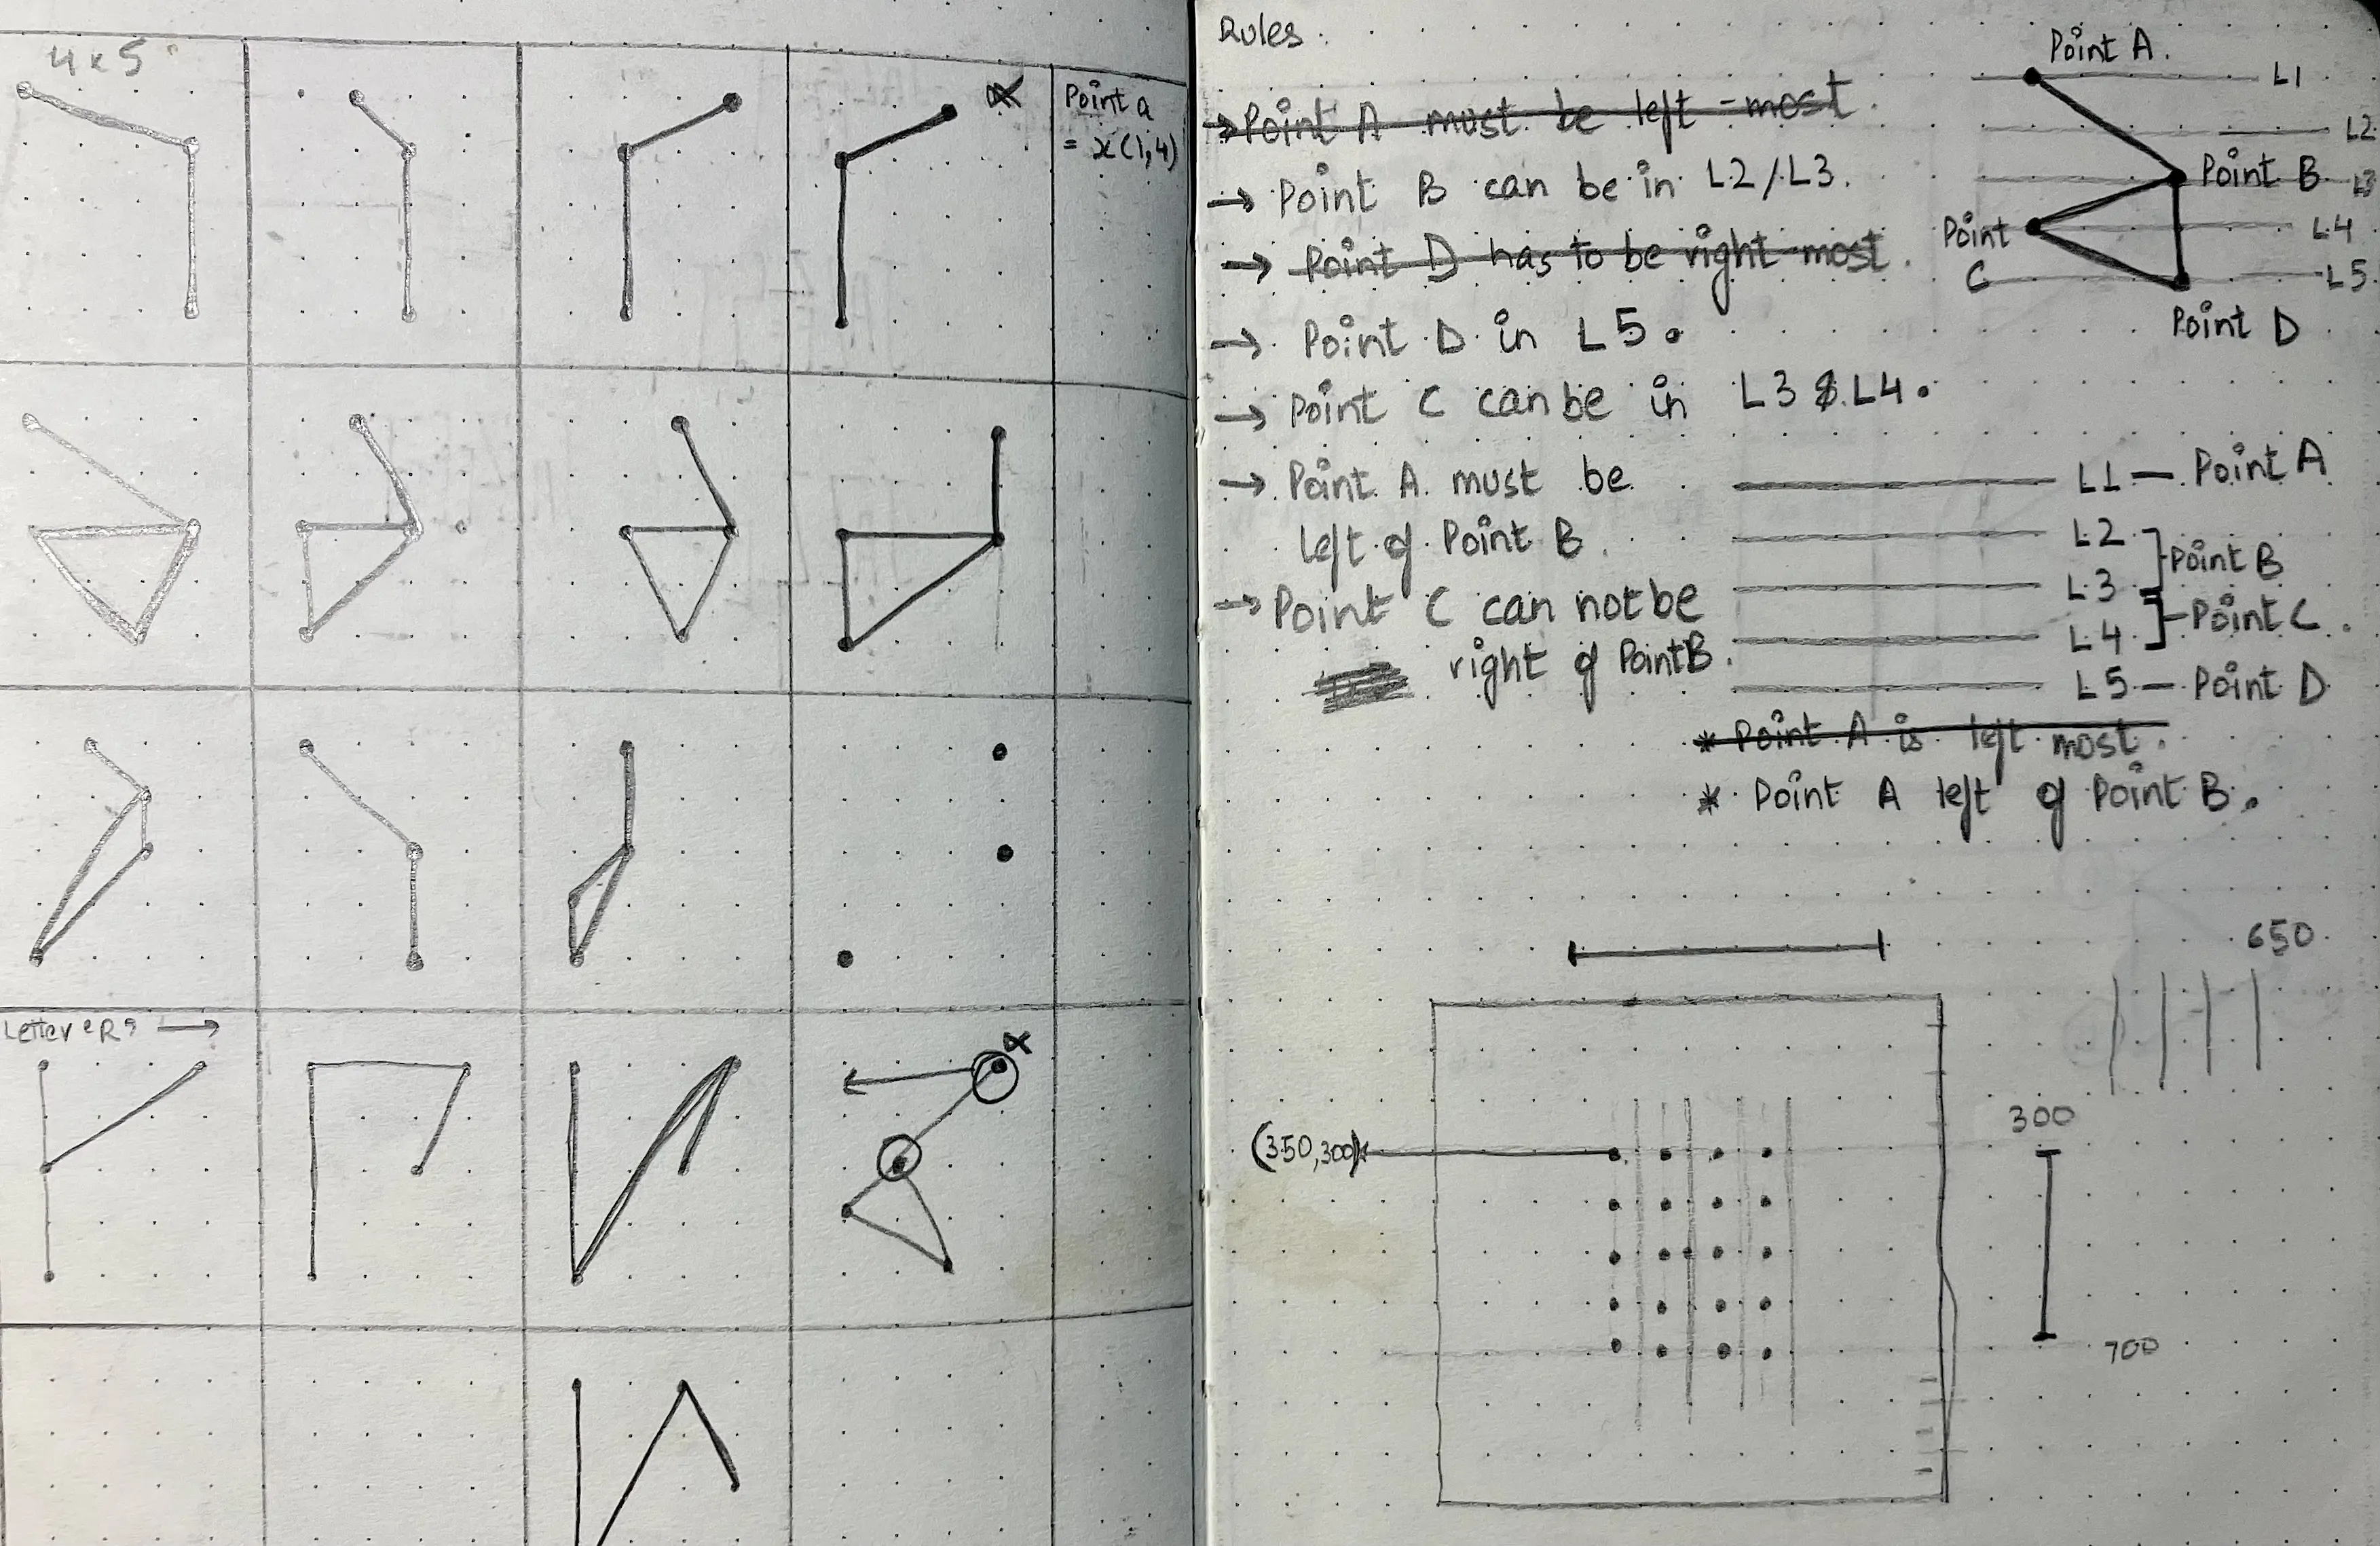 4 x 5
Point a
= x(1,4)
Letter 'R' →
Rules:
→ Point A must be left-most.
→ Point B can be in L2/L3.
→ Point D has to be right most.
→ Point D in L5.
→ Point C can be in L3 & L4.
→ Point A must be
left of Point B.
→ Point C can not be
right of Point B.
Point A.
L1
L2
Point B
L3
Point
C
L4
L5
Point D
L1 — Point A
L2
Point B
L3
L4
Point C.
L5 — Point D
* Point A is left most.
* Point A left of Point B.
650
(350,300)
300
700